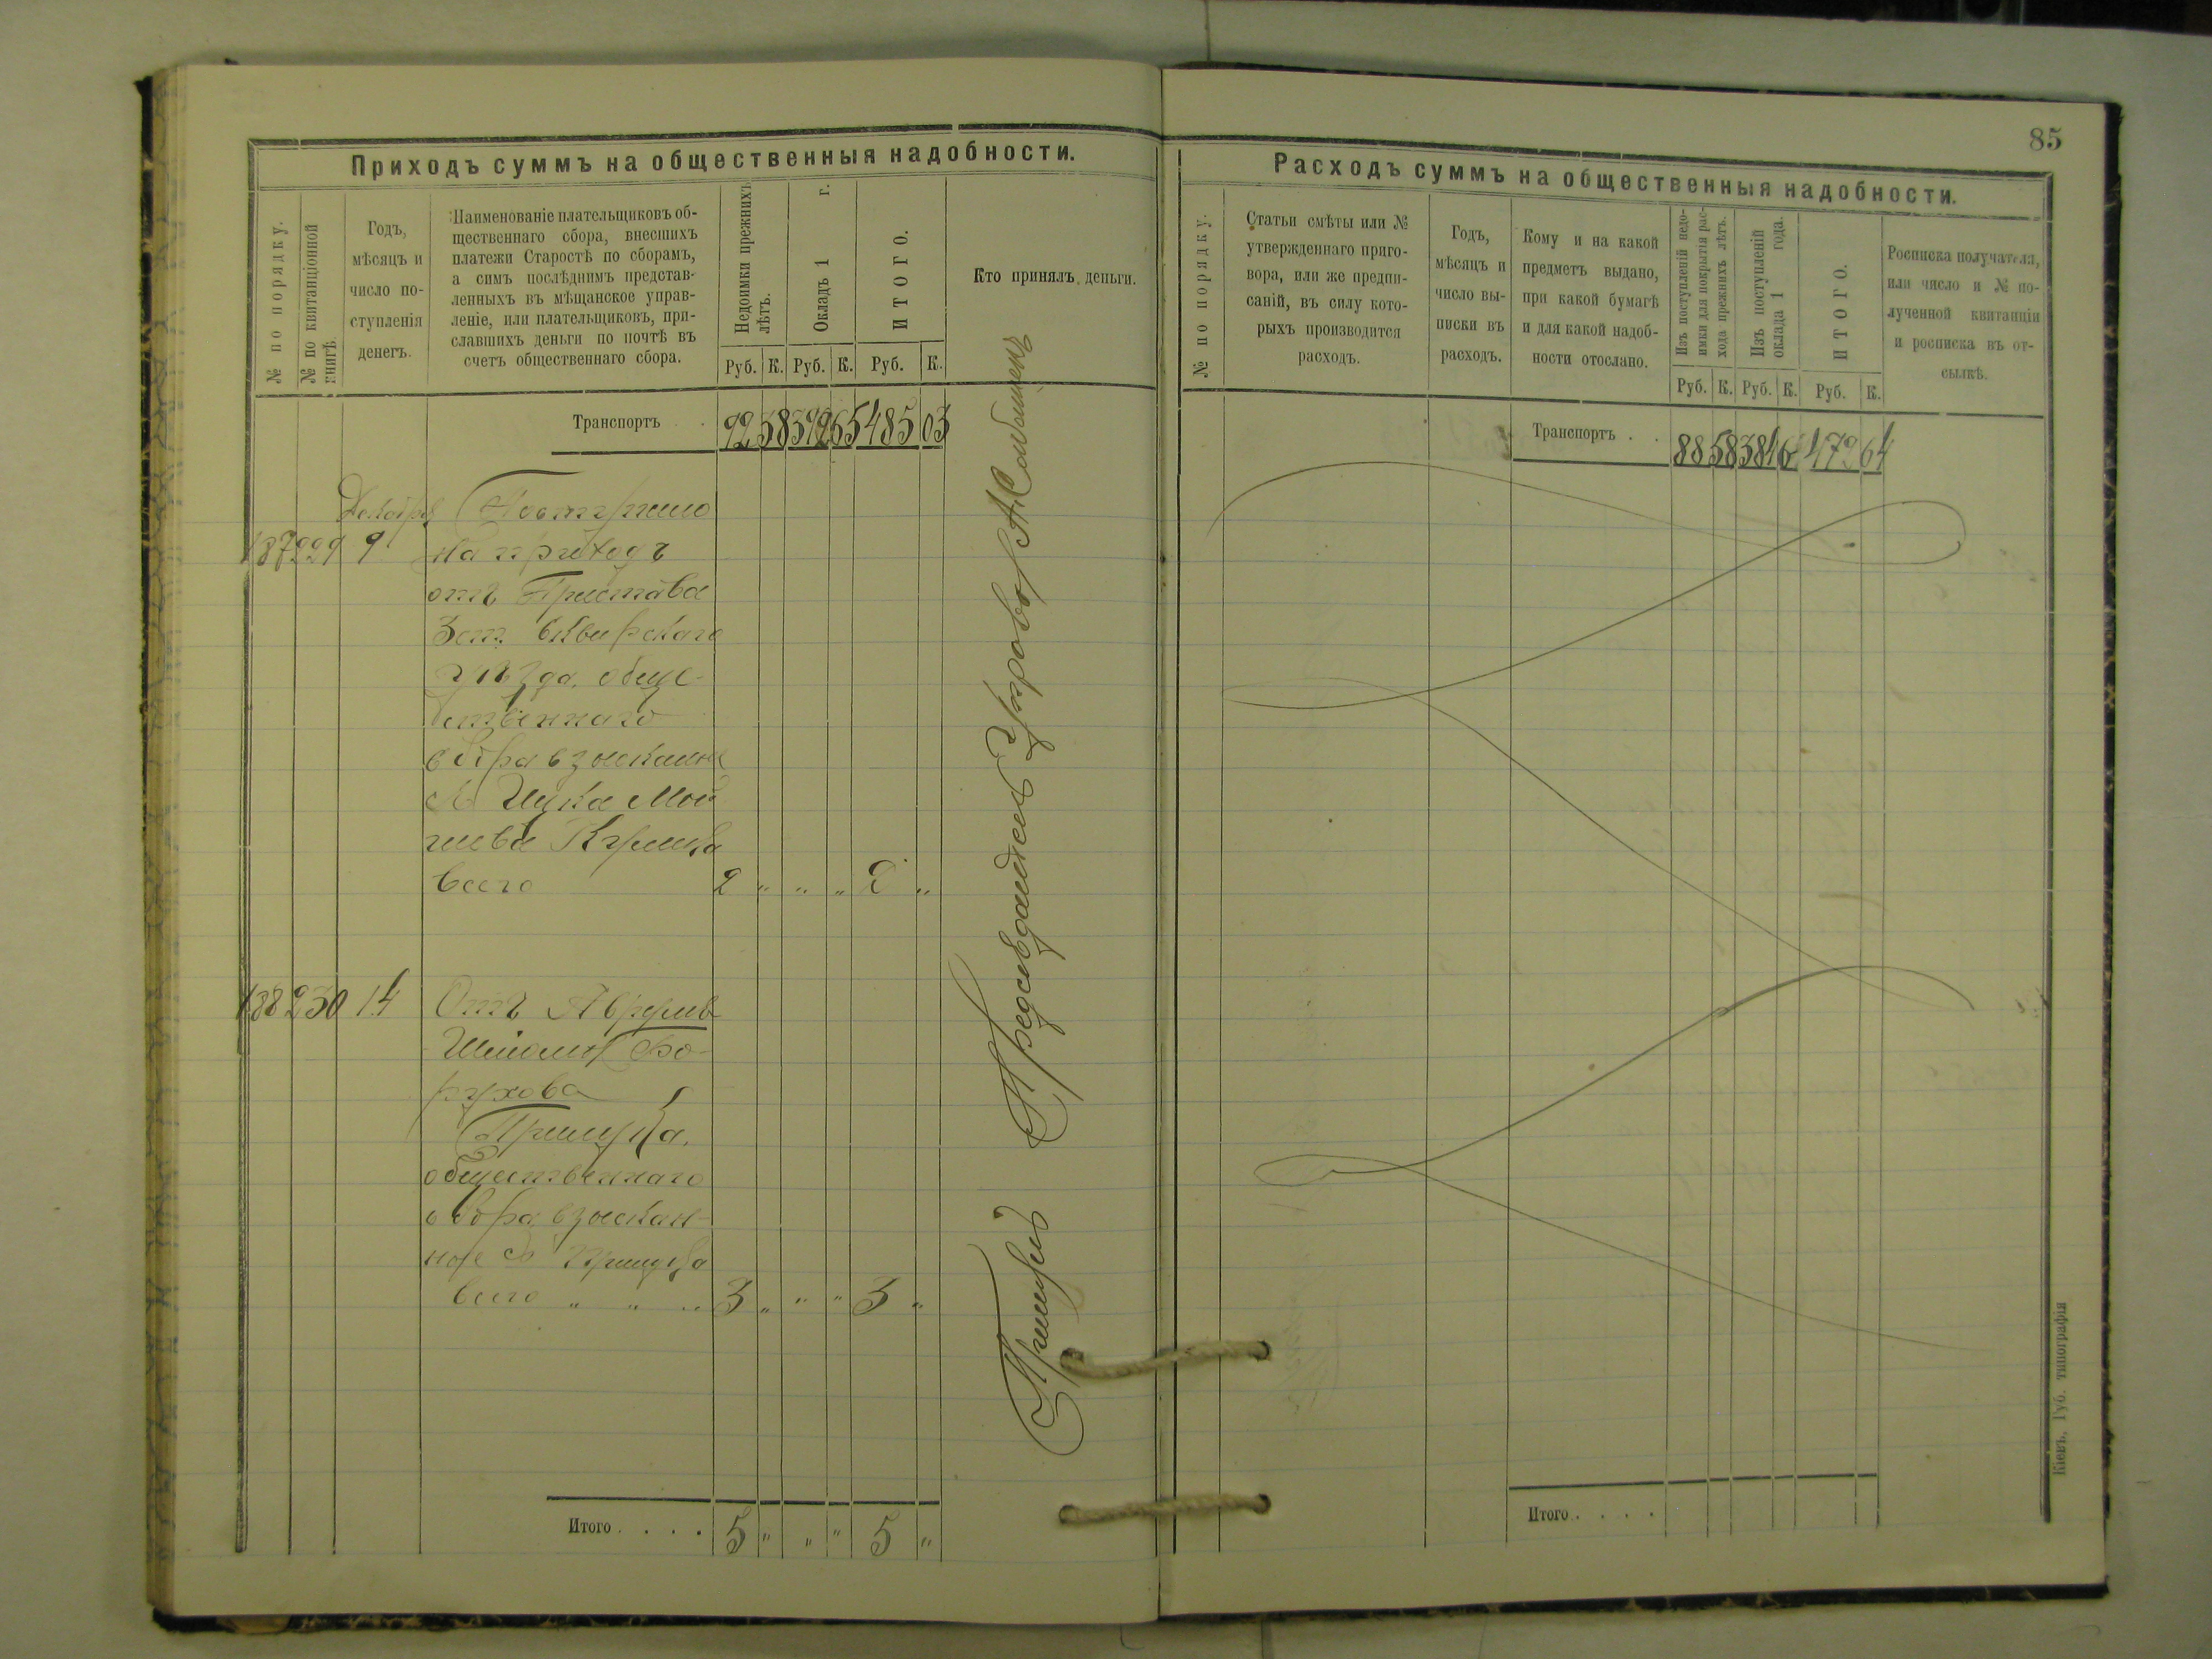 85
Приходъ суммъ на общественныя надобности.
№ по порядку.
№ по квитанціонной
книгѣ.
Годъ,
мѣсяцъ и
число по-
ступленія
денегъ.
Наименованіе плательщиковъ об-
щественнаго сбора, внесшихъ
платежи Старостѣ по сборамъ,
а симъ послѣднимъ представ-
ленныхъ въ мѣщанское управ-
леніе, или плательщиковъ, при-
славшихъ деньги по почтѣ въ
счетъ общественнаго сбора.
Недоимки прежнихъ
лѣтъ.
Окладъ 1 г.
ИТОГО.
Руб. К. Руб. К. Руб. К.
Кто принялъ деньги.
Транспортъ . . 92 38 392 65 485 03
Декабря
187 229 9
на приходъ
отъ Пристава
3 ст. Сквирскаго
уѣзда, обще-
ственнаго
сбора взысканн
съ Ицка Мой
шева
всего 2 " " " 2 "
188 230 14 Отъ
Шліомы Бо-
рухова
общественнаго
сбора, взыскан-
ное съ
всего " " " 3 " " " 3 "
Итого . . . . 5 " " " 5 "
Расходъ суммъ на общественныя надобности.
№ по порядку.
Статьи смѣты или №
утвержденнаго приго-
вора, или же предпи-
саній, въ силу кото-
рыхъ производится
расходъ.
Годъ,
мѣсяцъ и
число вы-
писки въ
расходъ.
Кому и на какой
предметъ выдано,
при какой бумагѣ
и для какой надоб-
ности отослано.
Изъ поступленій недо-
имки для покрытія рас-
хода прежнихъ лѣтъ.
Изъ поступленій
оклада 1 года.
ИТОГО.
Руб. К. Руб. К. Руб. К.
Росписка получателя,
или число и № по-
лученной квитанціи
и росписка въ от-
сылкѣ.
Транспортъ . . 88 58 384 6 472 64
Итого . . . .
Кіевъ, Губ. типографія